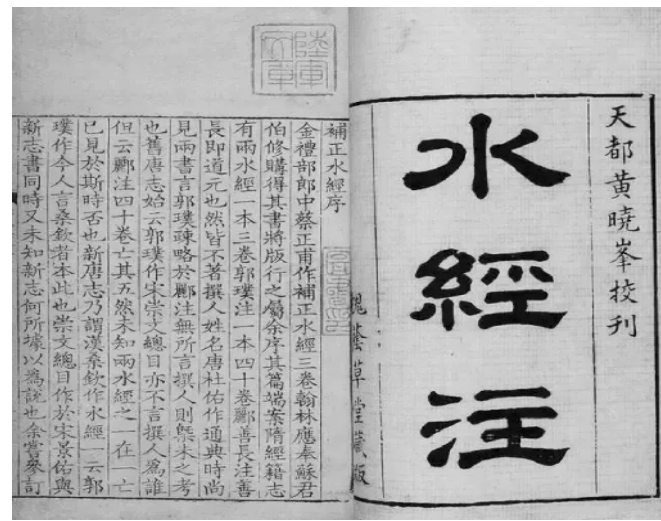 天都黃曉峯挍刊
水經注
槐蔭草堂藏版
陸軍
文庫
補正水經序
金禮部郎中蔡正甫作補正水經三卷翰林應奉蘇君
伯修購得其書將版行之屬余序其篇端案隋經籍志
有兩水經一本三卷郭璞注一本四十卷酈善長注善
長即道元也然皆不著撰人姓名唐杜佑作通典時尚
見兩書言郭璞疎略於酈注無所言撰人則槩未之考
也舊唐志始云郭璞作宋崇文總目亦不言撰人為誰
但云酈注四十卷亡其五然未知兩水經之一在一亡
已見於斯時否也新唐志乃謂漢桑欽作水經一云郭
璞作今人言桑欽者本此也崇文總目作於宋景佑與
新志書同時又未知新志何所據以為說也余嘗參訂